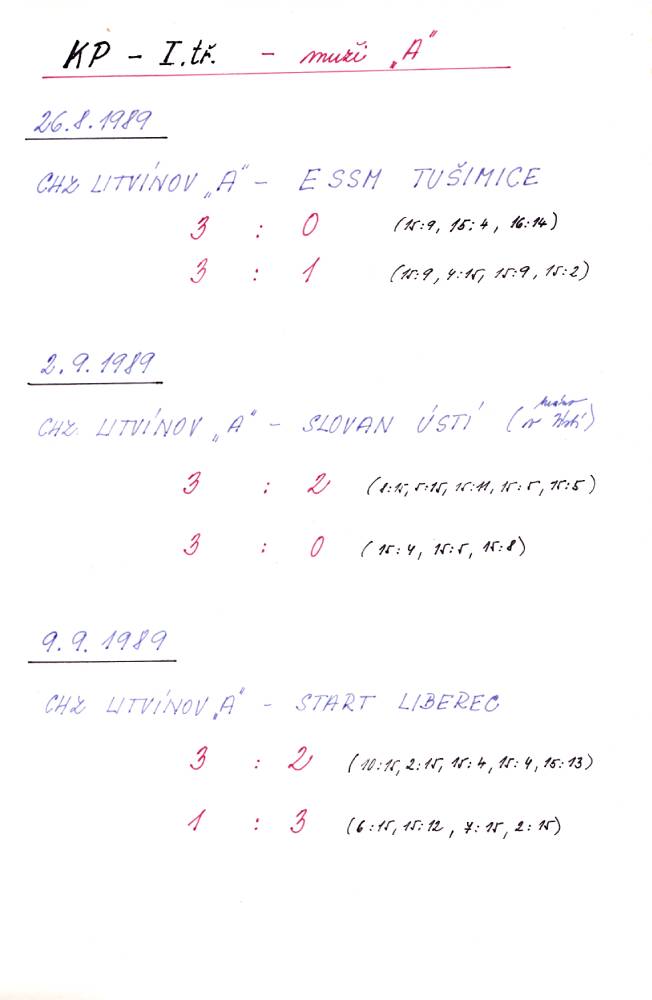 KP - I.tř. - muži „A"
26.8.1989
CHZ LITVÍNOV „A" - ESSM TUŠIMICE
3 : 0 (15:9, 15:4, 16:14)
3 : 1 (15:9, 4:15, 15:9, 15:2)
2.9.1989
CHZ LITVÍNOV „A" - SLOVAN ÚSTÍ (hráno v Ústí)
3 : 2 (8:15, 5:15, 15:11, 15:5, 15:5)
3 : 0 (15:4, 15:5, 15:8)
9.9.1989
CHZ LITVÍNOV „A" - START LIBEREC
3 : 2 (10:15, 2:15, 15:4, 15:4, 15:13)
1 : 3 (6:15, 15:12, 7:15, 2:15)